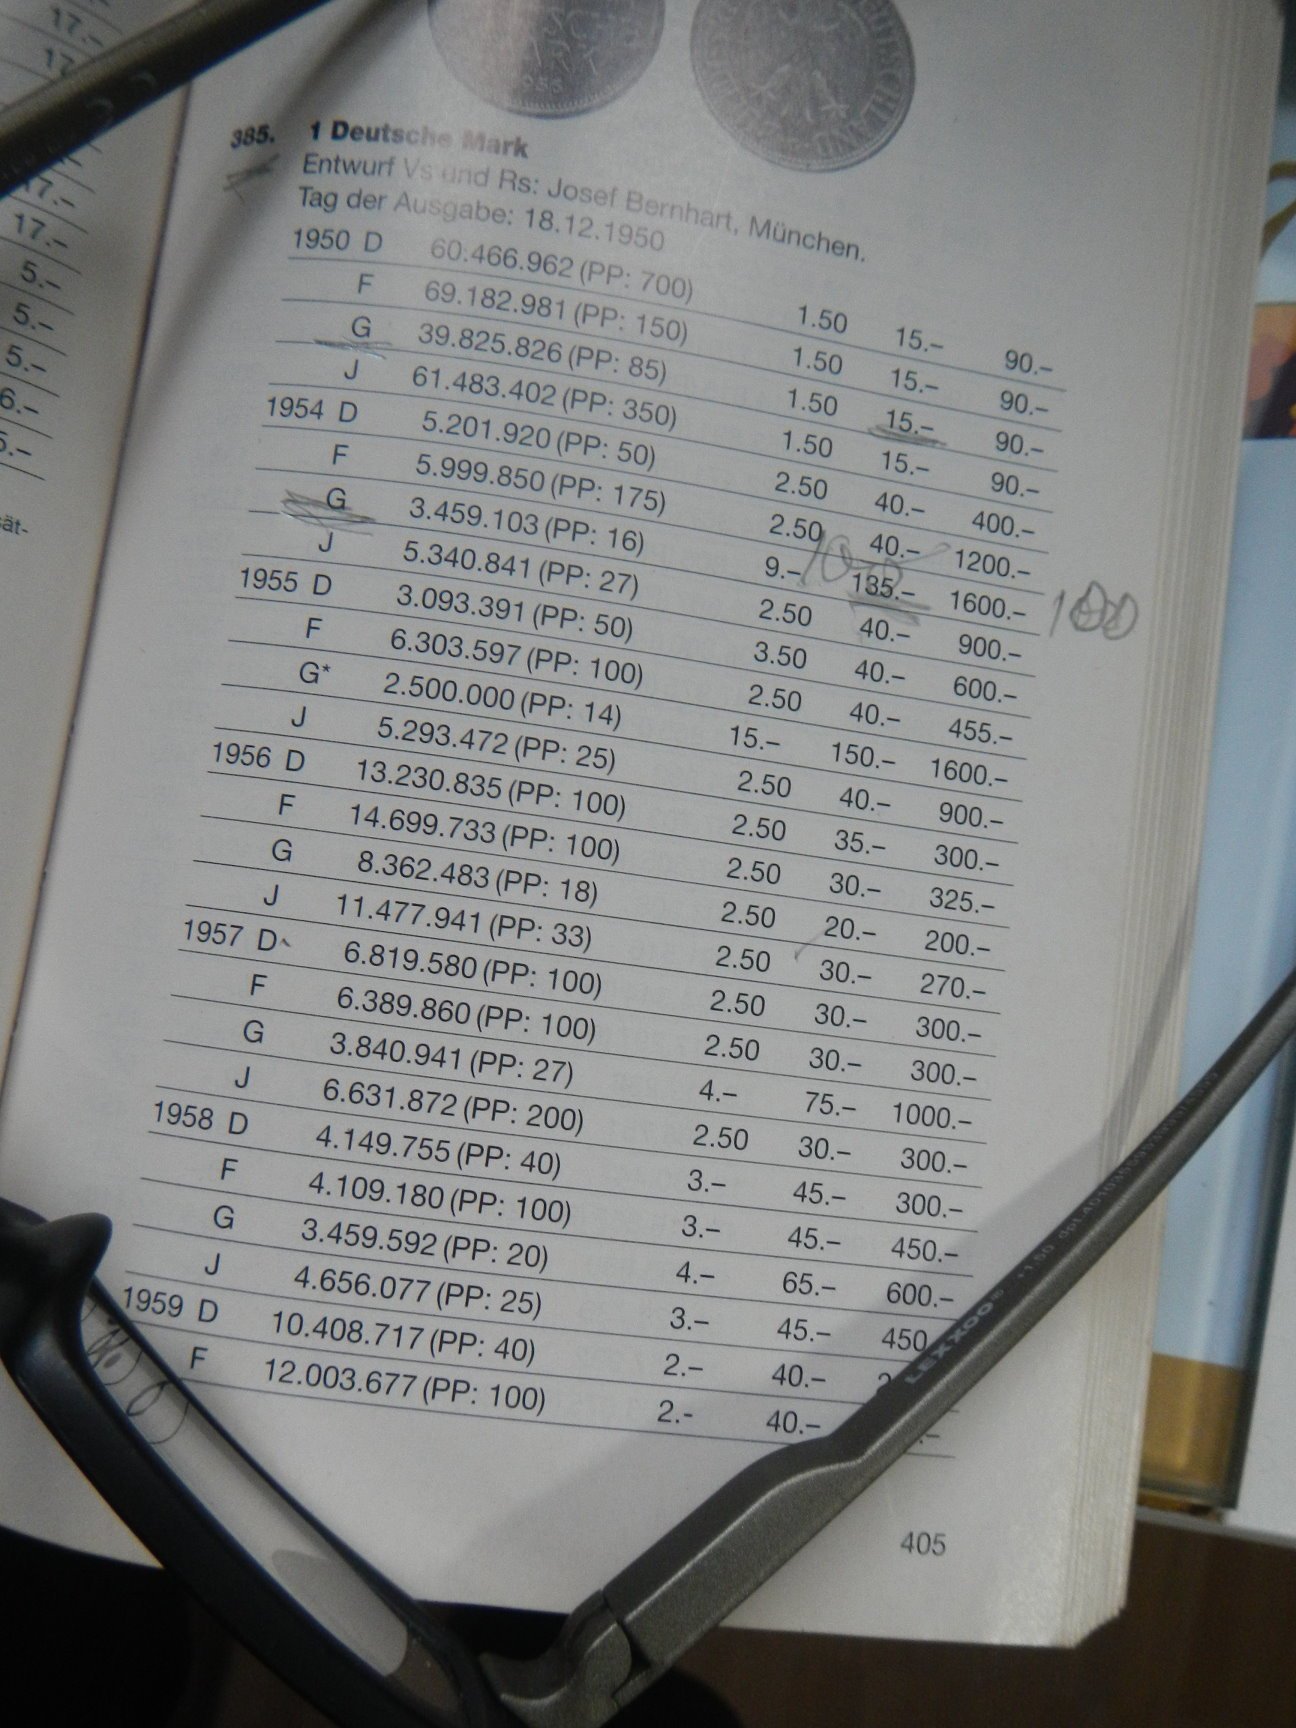 17.-
17
17.-
17.-
5.-
5.-
5.-
6.-
5.-
ät-
385. 1 Deutsche Mark
Entwurf Vs und Rs: Josef Bernhart, München.
Tag der Ausgabe: 18.12.1950
1950 D 60.466.962 (PP: 700) 1.50 15.– 90.–
F 69.182.981 (PP: 150) 1.50 15.– 90.–
G 39.825.826 (PP: 85) 1.50 15.– 90.–
J 61.483.402 (PP: 350) 1.50 15.– 90.–
1954 D 5.201.920 (PP: 50) 2.50 40.– 400.–
F 5.999.850 (PP: 175) 2.50 40.– 1200.–
G 3.459.103 (PP: 16) 9.– 100 185.– 1600.– 100
J 5.340.841 (PP: 27) 2.50 40.– 900.–
1955 D 3.093.391 (PP: 50) 3.50 40.– 600.–
F 6.303.597 (PP: 100) 2.50 40.– 455.–
G* 2.500.000 (PP: 14) 15.– 150.– 1600.–
J 5.293.472 (PP: 25) 2.50 40.– 900.–
1956 D 13.230.835 (PP: 100) 2.50 35.– 300.–
F 14.699.733 (PP: 100) 2.50 30.– 325.–
G 8.362.483 (PP: 18) 2.50 20.– 200.–
J 11.477.941 (PP: 33) 2.50 30.– 270.–
1957 D 6.819.580 (PP: 100) 2.50 30.– 300.–
F 6.389.860 (PP: 100) 2.50 30.– 300.–
G 3.840.941 (PP: 27) 4.– 75.– 1000.–
J 6.631.872 (PP: 200) 2.50 30.– 300.–
1958 D 4.149.755 (PP: 40) 3.– 45.– 300.–
F 4.109.180 (PP: 100) 3.– 45.– 450.–
G 3.459.592 (PP: 20) 4.– 65.– 600.–
J 4.656.077 (PP: 25) 3.– 45.– 450
1959 D 10.408.717 (PP: 40) 2.– 40.–
F 12.003.677 (PP: 100) 2.- 40.–
405
LEXXOO®